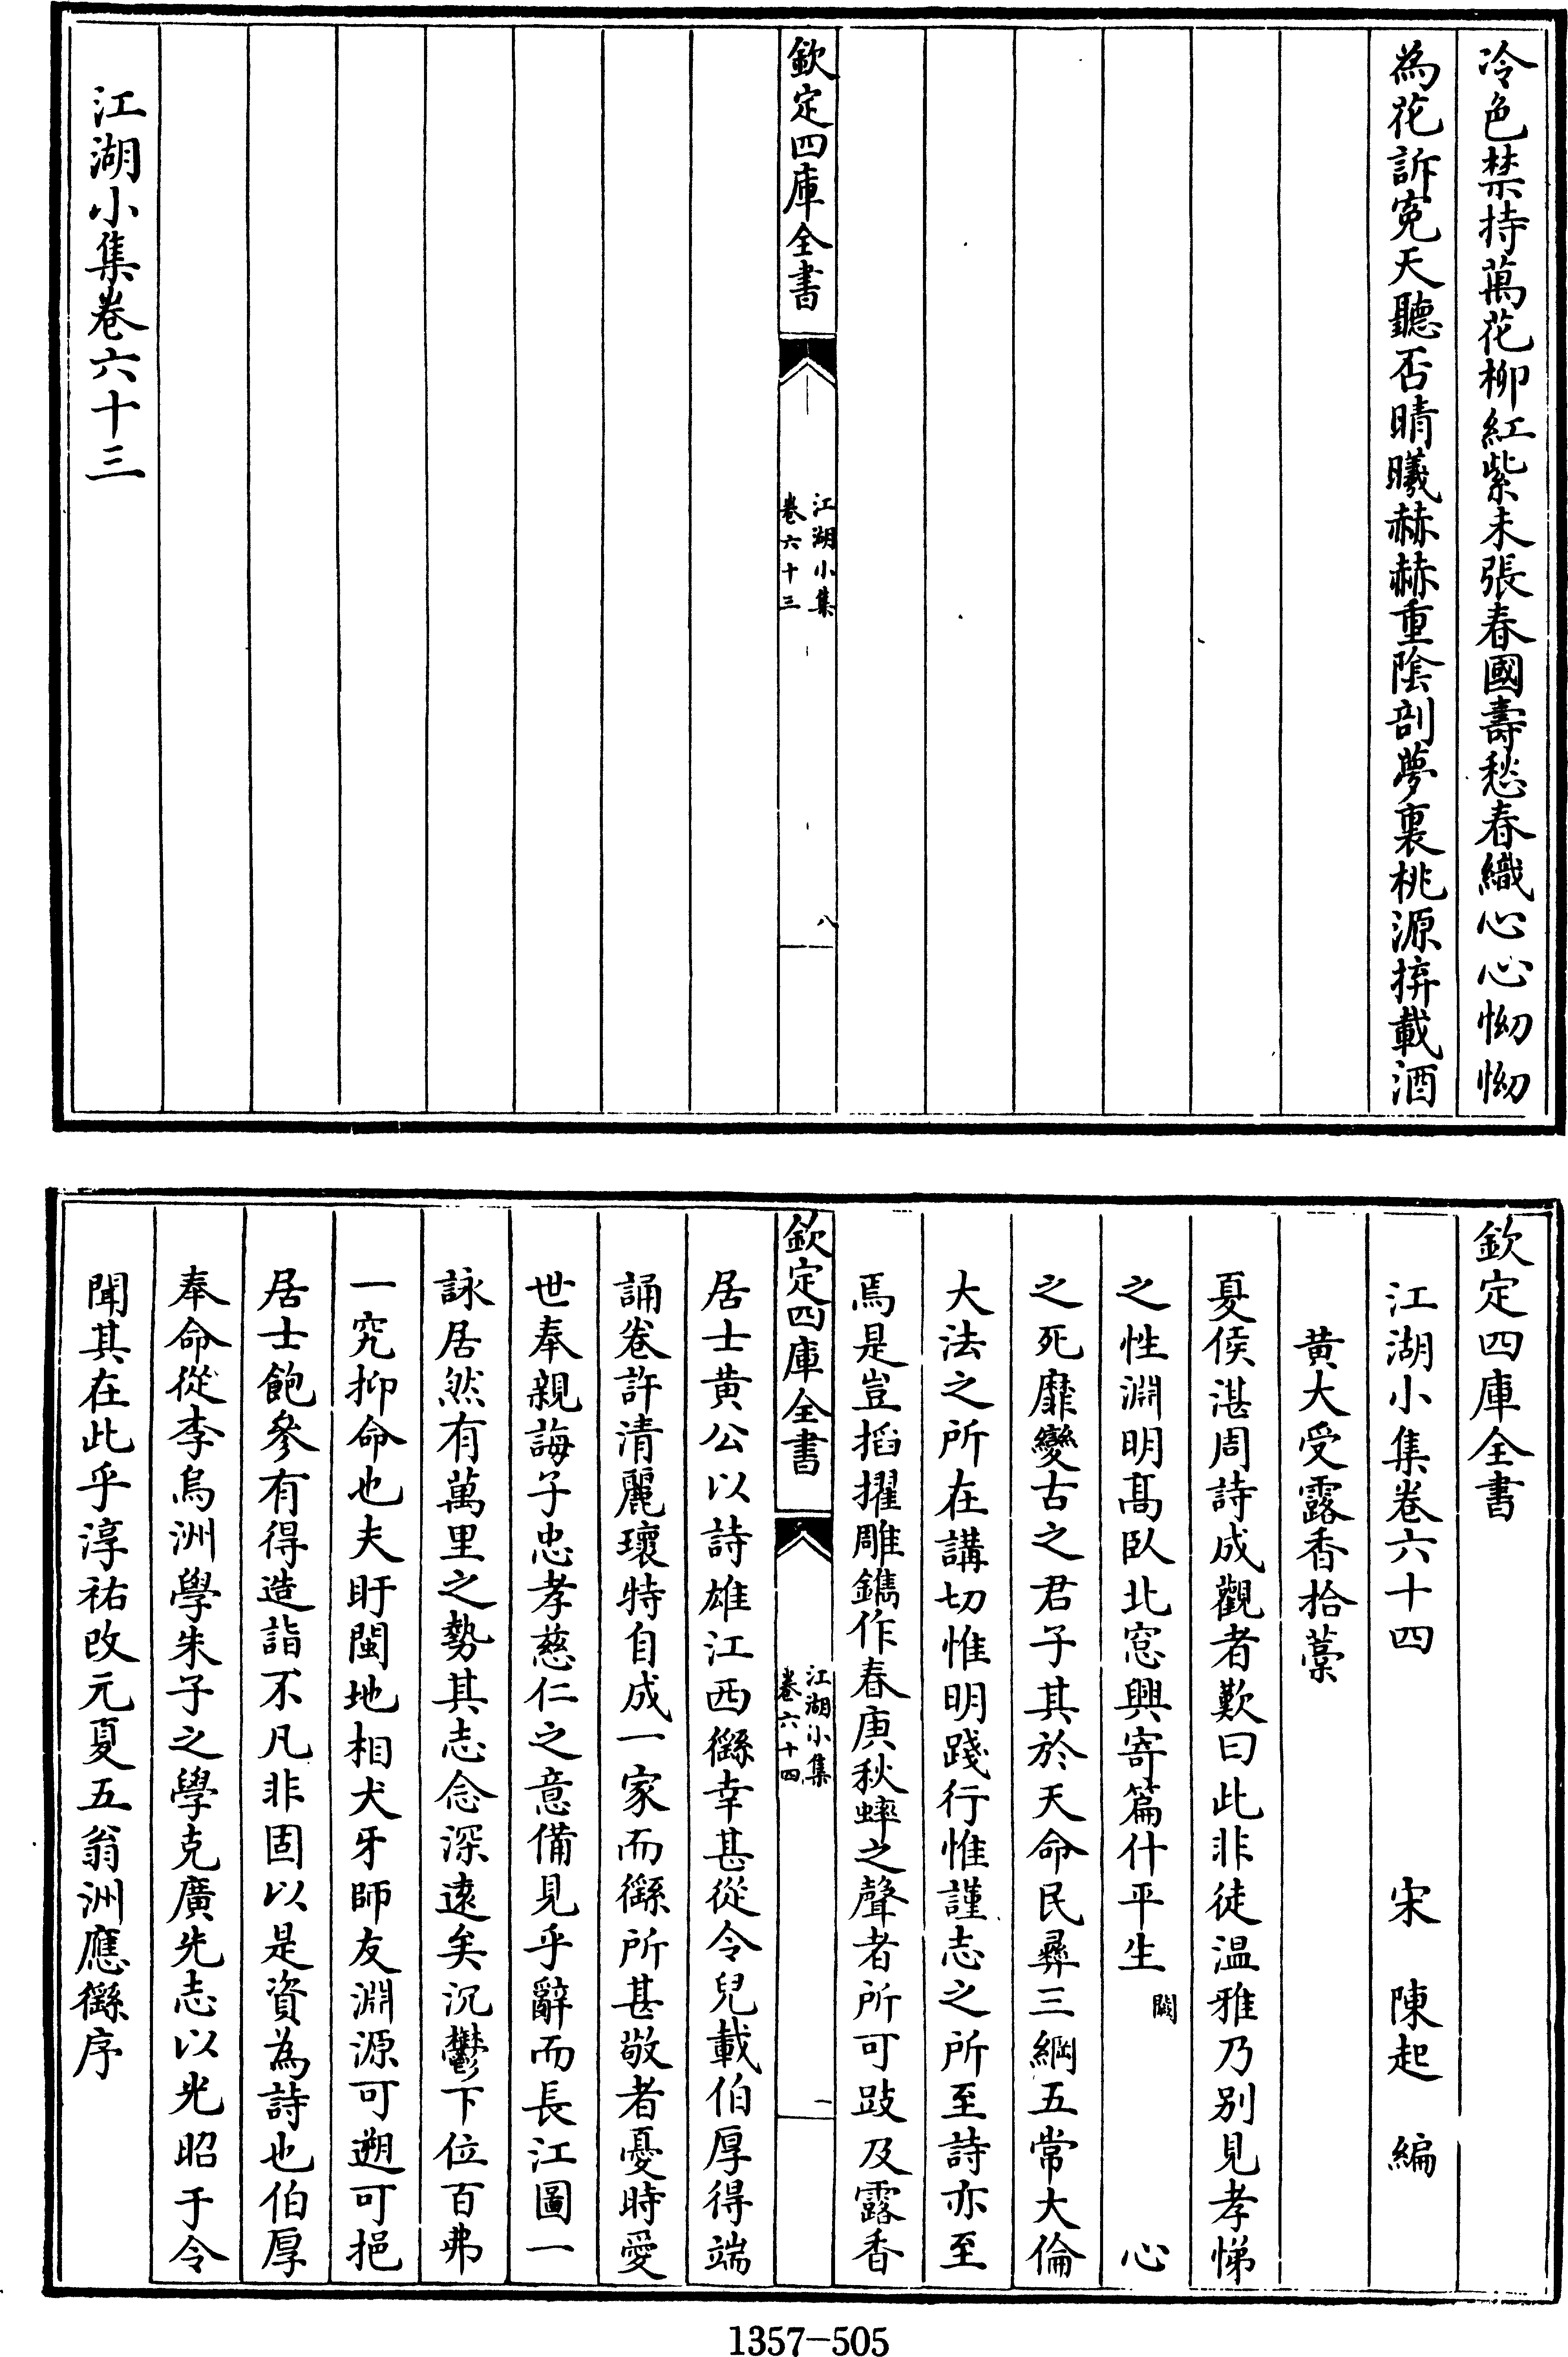 冷色禁持萬花柳紅紫未張春國壽愁春織心心怮怮
為花訴寃天聽否晴曦赫赫重陰剖夢裏桃源拚載酒
欽定四庫全書
江湖小集
卷六十三
八
江湖小集卷六十三
欽定四庫全書
江湖小集卷六十四
宋 陳起 編
黄大受露香拾藁
夏侯湛周詩成觀者歎曰此非徒温雅乃别見孝悌
之性淵明髙臥北窓興寄篇什平生 闕 心
之死靡變古之君子其於天命民彝三綱五常大倫
大法之所在講切惟明踐行惟謹志之所至詩亦至
焉是豈搯擢雕鐫作春庚秋蟀之聲者所可跂及露香
欽定四庫全書
江湖小集
卷六十四
一
居士黄公以詩雄江西繇幸甚從令兒載伯厚得端
誦卷許清麗瓌特自成一家而繇所甚敬者憂時愛
世奉親誨子忠孝慈仁之意備見乎辭而長江圖一
詠居然有萬里之勢其志念深逺矣沉鬱下位百弗
一究抑命也夫盱閩地相犬牙師友淵源可遡可挹
居士飽參有得造詣不凡非固以是資為詩也伯厚
奉命從李烏洲學朱子之學克廣先志以光昭于令
聞其在此乎淳祐改元夏五翁洲應繇序
1357-505